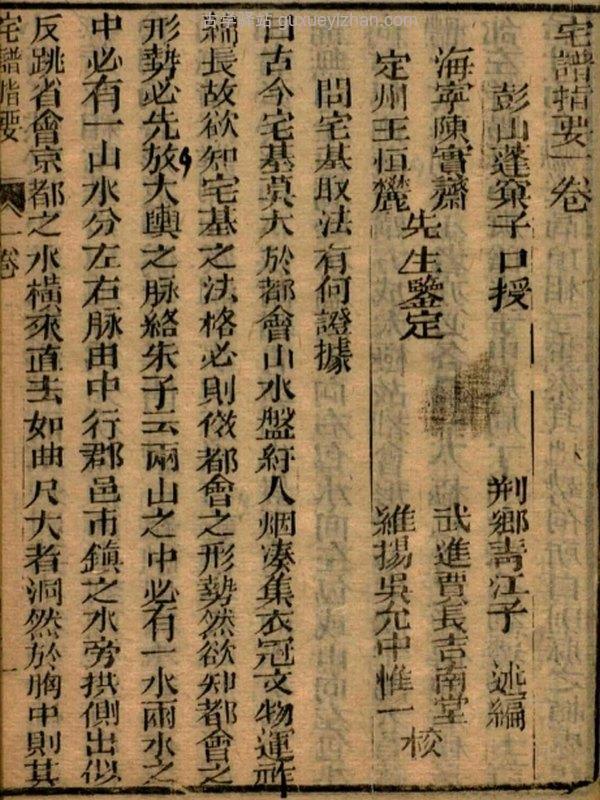 古学驿站 guxueyizhan.com
宅譜指要一卷
彭山蓬窮子口授
荆鄉青江子 述編
海寧陳實齋
定州王恒麓
先生鑒定
武進賈長吉南堂
維揚吳允中惟一
校
問宅基取法有何證據
曰古今宅基莫大於都會山水盤紆人烟湊集衣冠文物運祚
綿長故欲知宅基之法格必則傚都會之形勢然欲知都會之
形勢必先放大輿之脉絡朱子云兩山之中必有一水兩水之
中必有一山水分左右脉由中行郡邑市鎮之水旁拱側出似
反跳省會京都之水橫來直去如曲尺大者洞然於胸中則其
宅譜指要
一卷
一